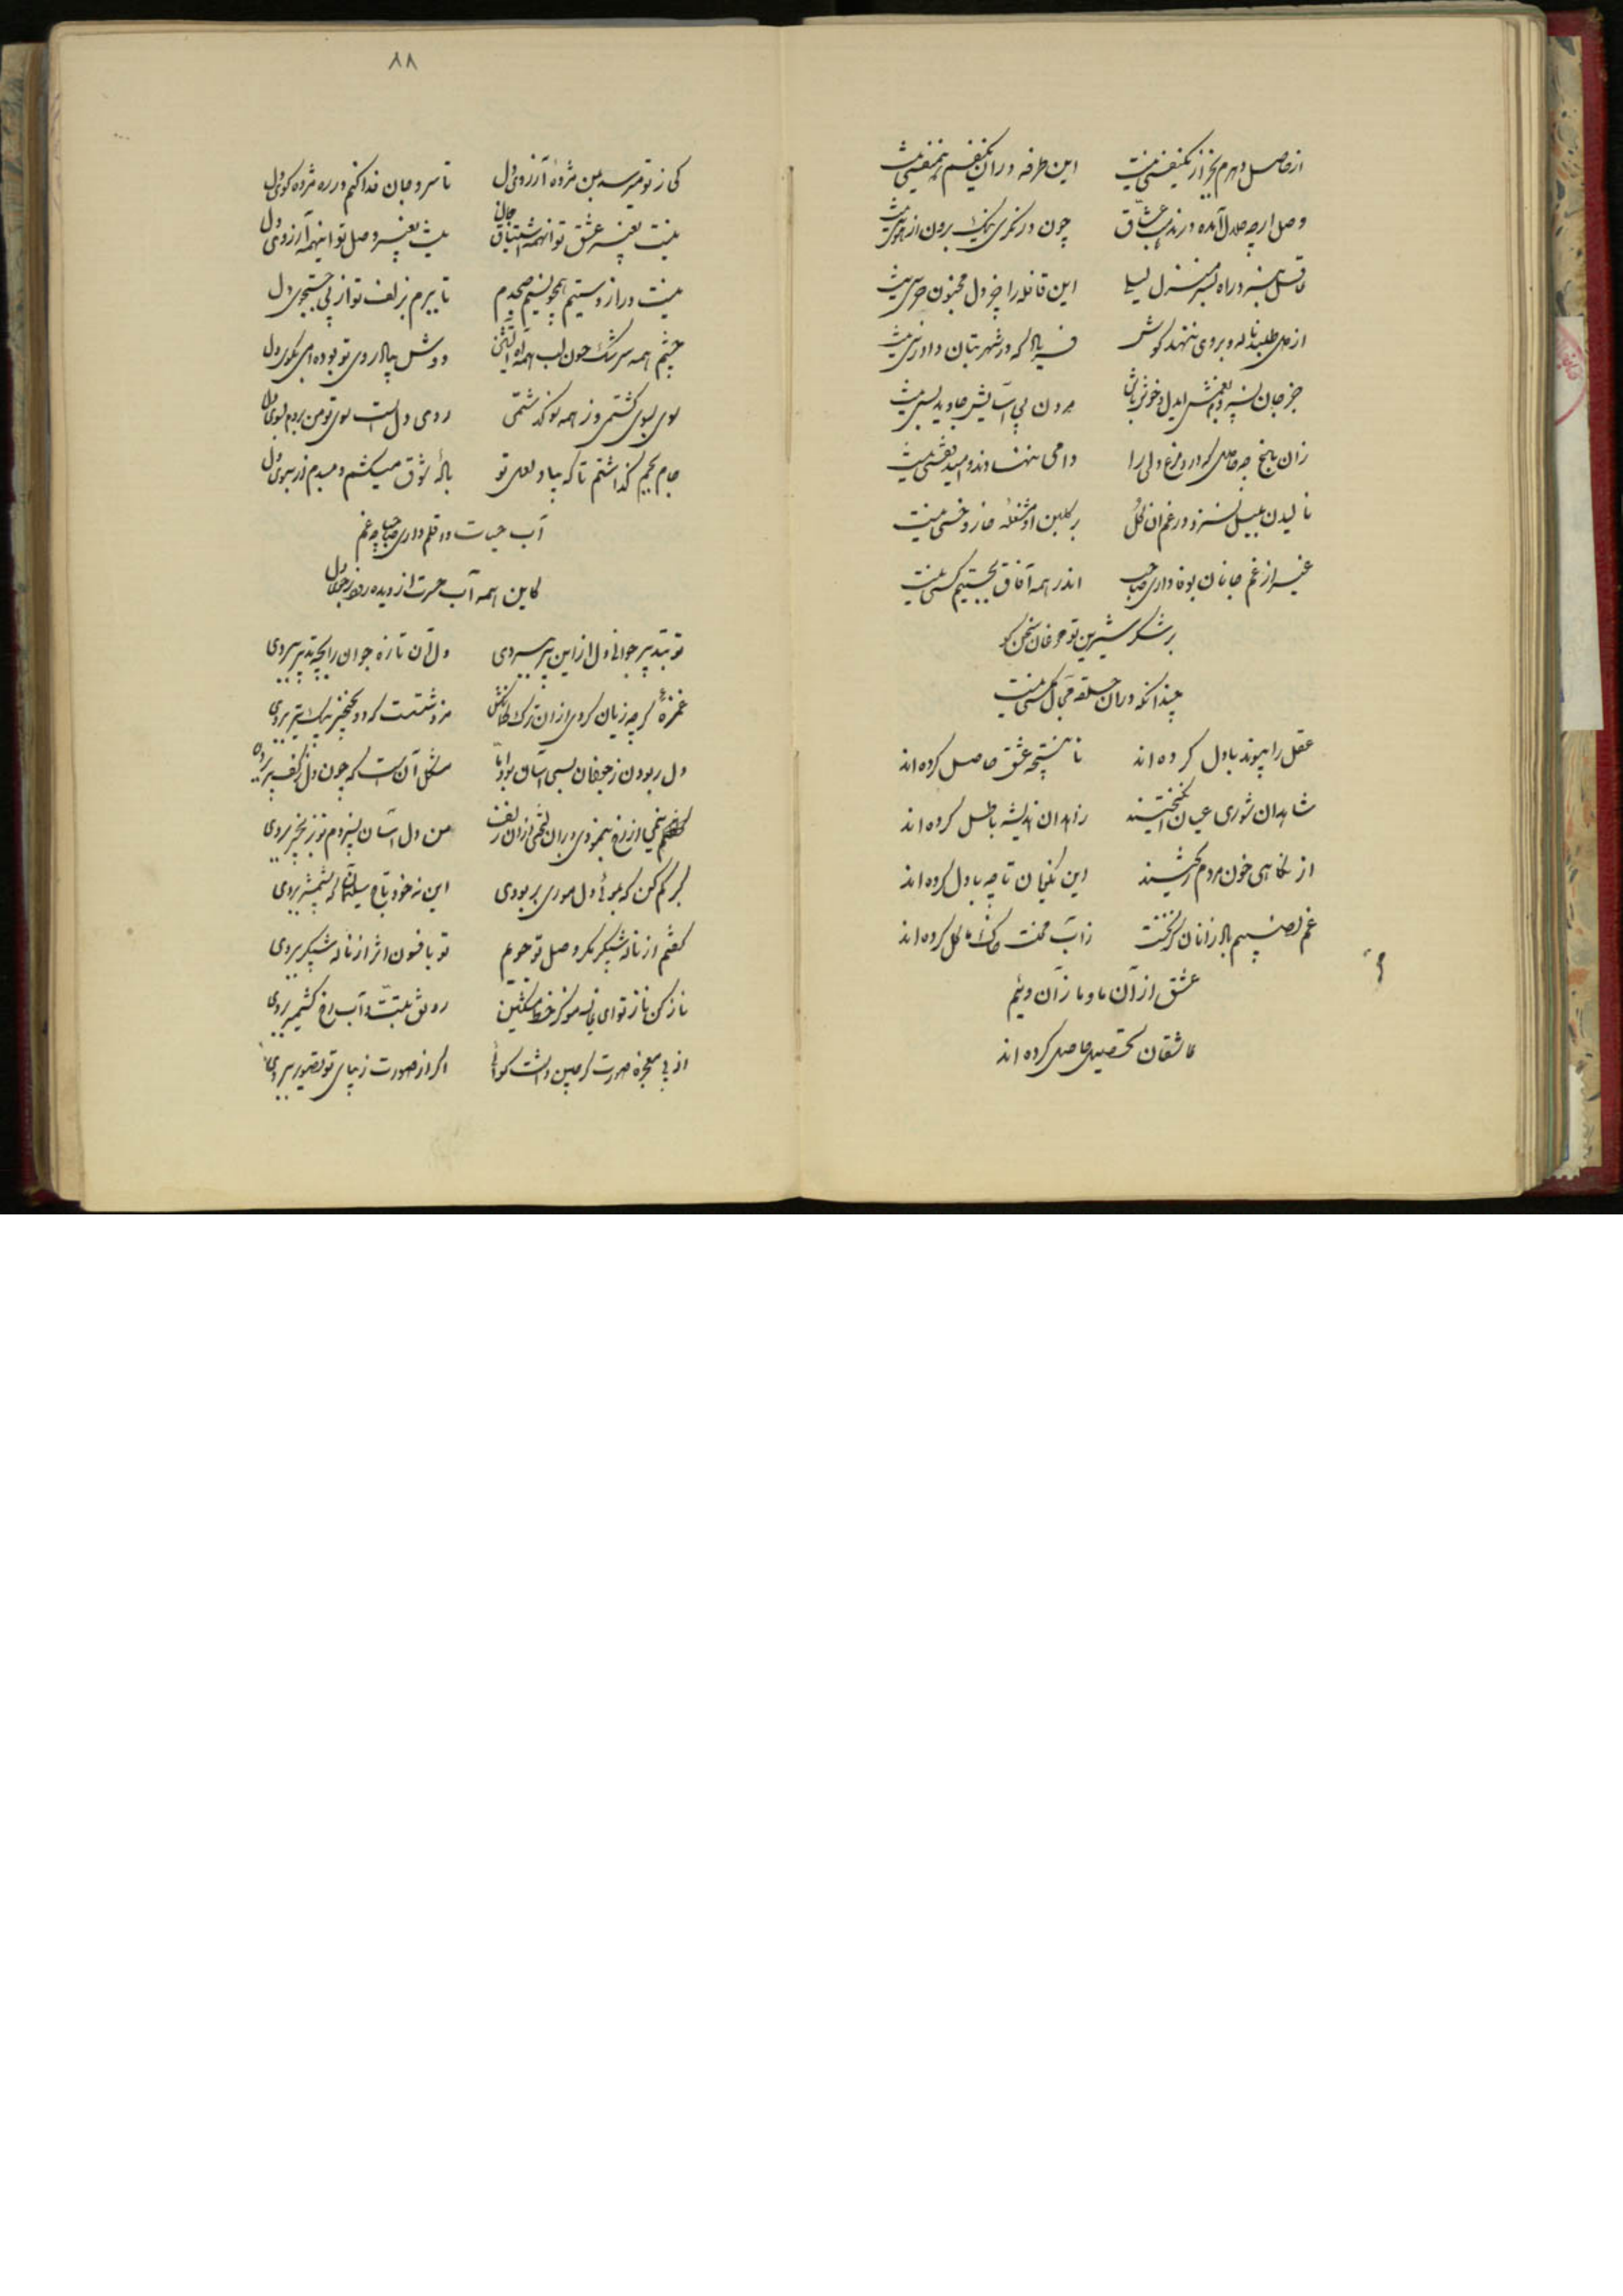 از حاصل دهرم بجز از یکنفسی نیست این طرفه در آن یکنفسم همنفسی نیست
وصل ارچه حلال آمده در مذهب عشاق چون در نگری نیک برون از هوسی نیست
عاقل سپرد راه بسر منزل لیلی این قافله را جز دل مجنون جرسی نیست
از دل طلبند ناله و بروی ننهند گوش فریاد که در شهر بتان دادرسی نیست
جز جان بسپر در غمش ایدل و خوش باش مردن پی آسایش جاوید بسی نیست
زان باغ چه حاصل که در و مرغ دلی را دامی ننهادند و امید قفسی نیست
نالیدن بلبل نسزد در غم آن گل بر گلبن او مشغله خار و خسی نیست
غیر از غم جانان بوفاداری صاحب اندر همه آفاق بجستیم کسی نیست
بر شکر شیرین تو طوفان سخن گو
چندانکه در آن حلقه مجال مگسی نیست
عقل را پیوند با دل کرده اند تا نتیجه عشق حاصل کرده اند
شاهدان شوری عیان انگیختند زاهدان اندیشه باطل کرده اند
از نگاهی خون مردم میکشند این نکویان تا چه با دل کرده اند
غم نصیبم بد از آنان کز نخست ز آب محنت خاک ما گل کرده اند
عشق از آن ما و ما ز آن وئیم
عاشقان تحصیل حاصل کرده اند
٨٨
کی ز تو میرسد بمن مژدهٔ آرزوی دل تا سر و جان فدا کنم در ره مژده گوی دل
نیست بغیر عشق تو اینهمه اشتیاق جان نیست بغیر وصل تو اینهمه آرزوی دل
نیست دراز دستیم همچو نسیم صبحدم تا ببرم بزلف تو از پی جستجوی دل
چشم همه سرشک خون لب همه آه آتشین دوش بیاد روی تو بوده ام بکوی دل
سوی بسوی گشتمی وز همه سو گذشتمی روی دل است سوی تو من بروم بسوی دل
جام بجم گذاشتم تا که بیاد لعل تو بادهٔ شوق میکشم دمبدم از سبوی دل
آب حیات در قلم داری صاحبا چه غم
کاین همه آب حسرت از دیده رود بجوی دل
تو بتدبیر جوانی دل از این پیر ببردی دل آن تازه جوان را بچه تدبیر ببردی
غمزهٔ گرچه زیان کردی از آن ترک کمانکش مزد شستت که دو نخجیر بیک تیر ببردی
دل ربودن ز حریفان بسی آسان بود اما مشکل آن است که چون دل ز کف پیر ببردی
نیمی از رخ بنمودی و بر آن لختی از آن زلف من دل آسان بسپردم تو بزنجیر ببردی
گیرم کن که بموئی دل موری بربودی این نه خود تاج سلیمان که بشمشیر ببردی
گفتم از ناله شبگیر مگر وصل تو جویم تو بافسون اثر از ناله شبگیر ببردی
ناز کن ناز تو ای خط مشکین رونق تبت و آب رخ کشمیر ببردی
از پی معجزه صورت گر چین داشت گواهی اگر از صورت زیبای تو تصویر ببردی